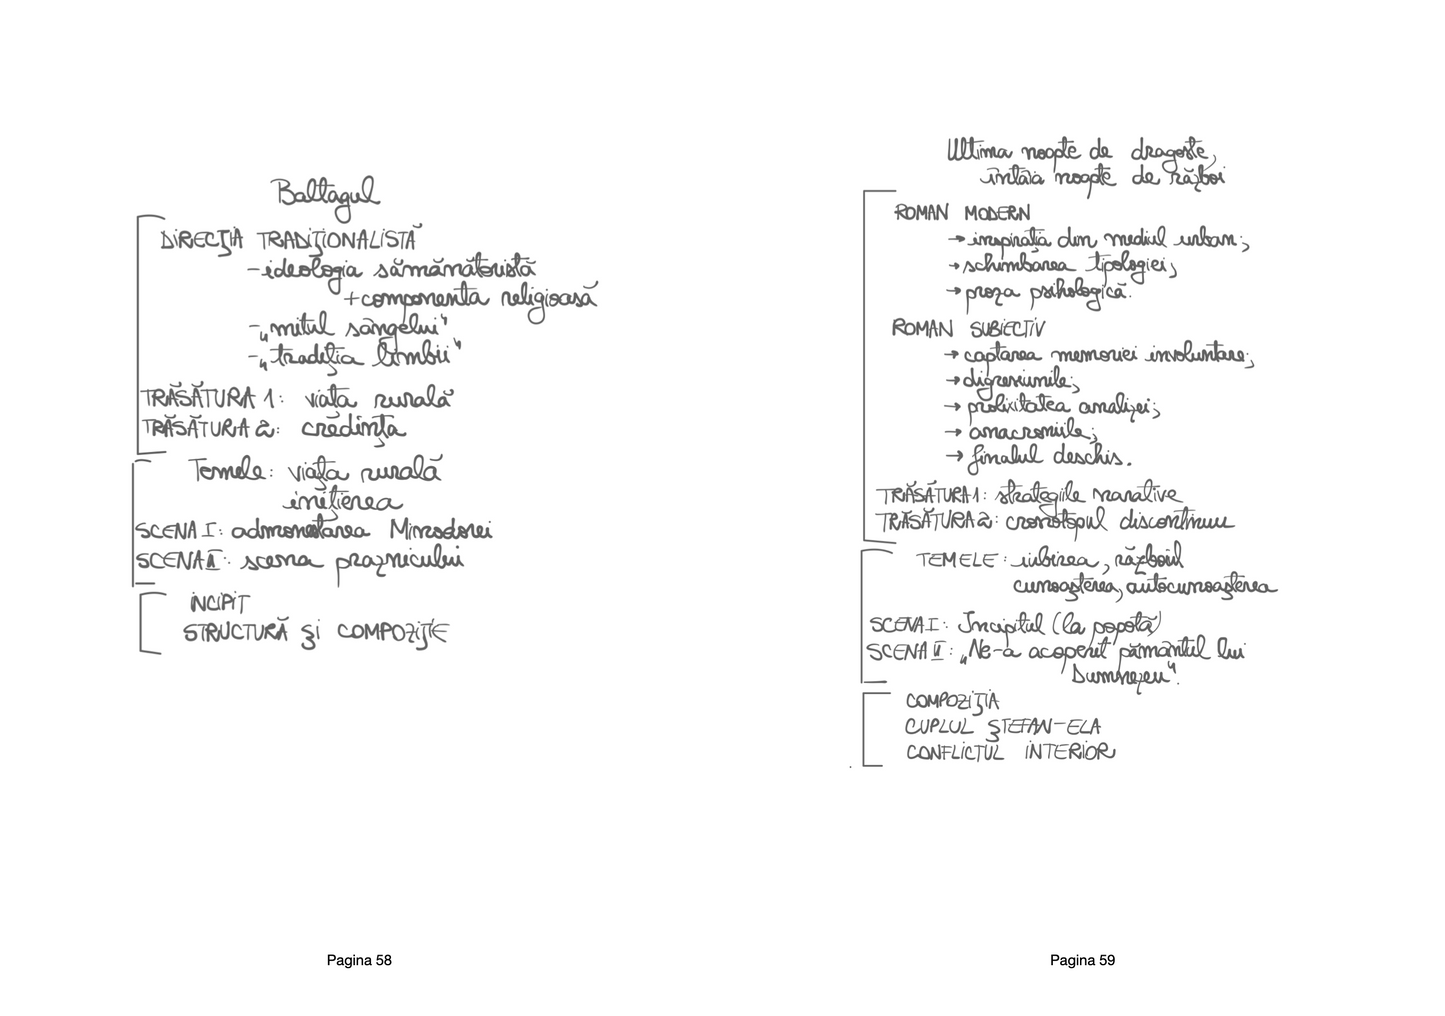 Baltagul
DIRECȚIA TRADIȚIONALISTĂ
-ideologia sămănătoristă
+componenta religioasă
-„mitul sângelui"
-„tradiția limbii"
TRĂSĂTURA 1: viața rurală
TRĂSĂTURA 2: credința
Temele: viața rurală
inițierea
SCENA I: admonestarea Minodorei
SCENA II: scena praznicului
INCIPIT
STRUCTURĂ ȘI COMPOZIȚIE
Pagina 58
Ultima noapte de dragoste,
întâia noapte de război
ROMAN MODERN
→ inspirația din mediul urban;
→ schimbarea tipologiei;
→ proza psihologică.
ROMAN SUBIECTIV
→ captarea memoriei involuntare;
→ digresiunile;
→ prolixitatea analizei;
→ anacroniile;
→ finalul deschis.
TRĂSĂTURA 1: strategiile narative
TRĂSĂTURA 2: cronotopul discontinuu
TEMELE: iubirea, războiul
cunoașterea, autocunoașterea
SCENA I: Incipitul (la popotă)
SCENA II: „Ne-a acoperit pământul lui
Dumnezeu".
COMPOZIȚIA
CUPLUL ȘTEFAN-ELA
CONFLICTUL INTERIOR
Pagina 59